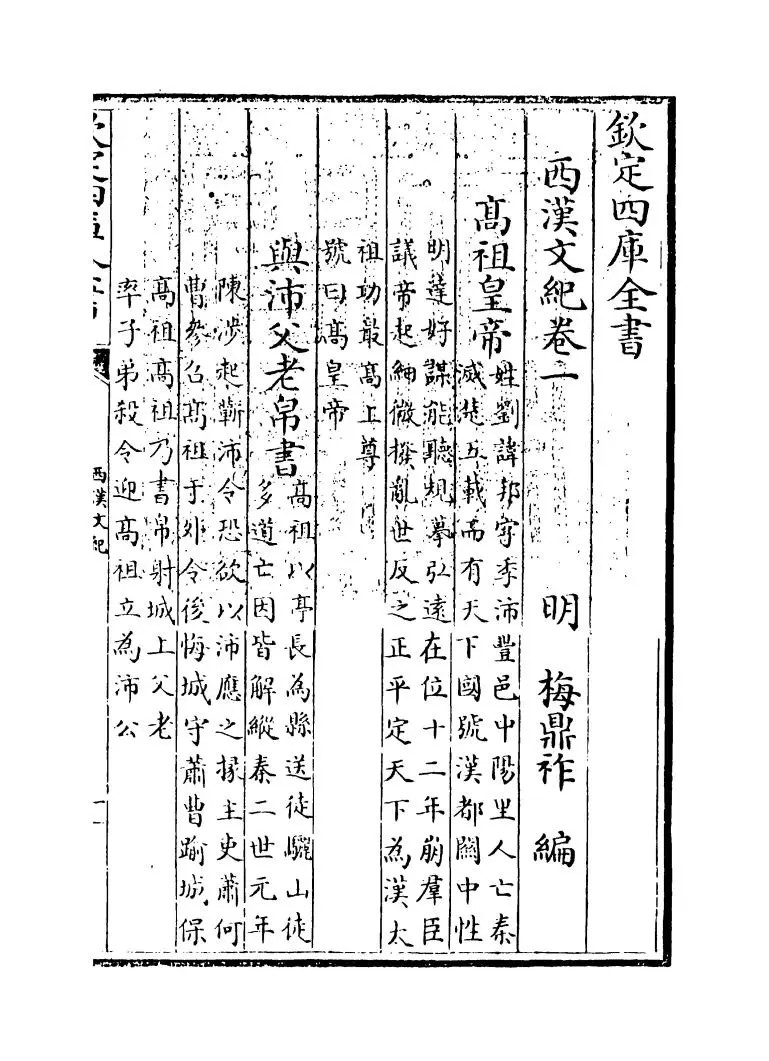 欽定四庫全書
西漢文紀卷一　明　梅鼎祚　編
髙祖皇帝
姓劉諱邦字季沛豐邑中陽里人亡秦
滅楚五載而有天下國號漢都關中性
明達好謀能聽規摹弘遠在位十二年崩羣臣
議帝起細微撥亂世反之正平定天下為漢太
祖功最髙上尊
號曰髙皇帝
與沛父老帛書
髙祖以亭長為縣送徒驪山徒
多道亡因皆解縱秦二世元年
陳涉起蘄沛令恐欲以沛應之掾主吏蕭何
曹參召髙祖于外令後悔城守蕭曹踰城保
髙祖髙祖乃書帛射城上父老
率子弟殺令迎髙祖立為沛公
欽定四庫全書
西漢文紀
一